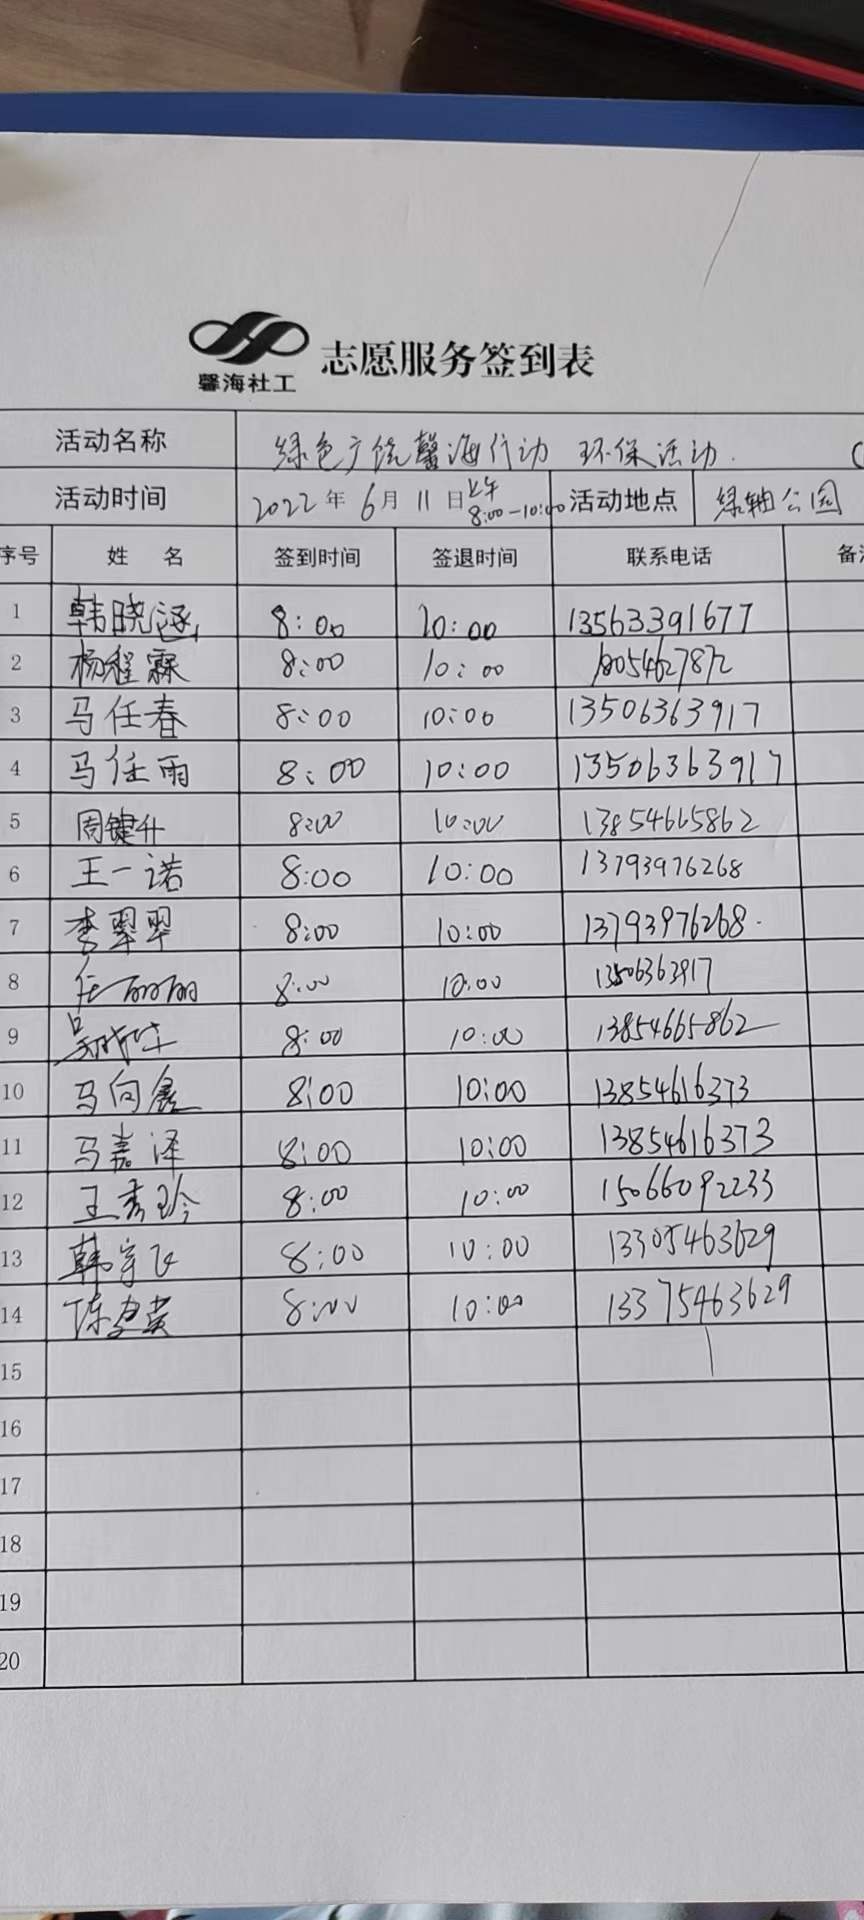 馨海社工 志愿服务签到表
活动名称 绿色广饶馨海行动 环保活动. (
活动时间 2022年6月11日 上午 8:00-10:00 活动地点 绿轴公园
序号 姓 名 签到时间 签退时间 联系电话 备
1 韩晓涵 8:00 10:00 13563391677
2 杨程霖 8:00 10:00
3 马任春 8:00 10:00 13506363917
4 马任雨 8:00 10:00 13506363917
5 周键升 8:00 10:00 13854665862
6 王一诺 8:00 10:00 13793976268
7 李翠翠 8:00 10:00 13793976268.
8 任丽丽 8:00 10:00 13506363917
9 8:00 10:00 13854665862
10 马向鑫 8:00 10:00 13854616373
11 马嘉泽 8:00 10:00 13854616373
12 王秀玲 8:00 10:00 15066092233
13 韩宇飞 8:00 10:00 13305463629
14 陈 英 8:00 10:00 13375463629
15
16
17
18
19
20